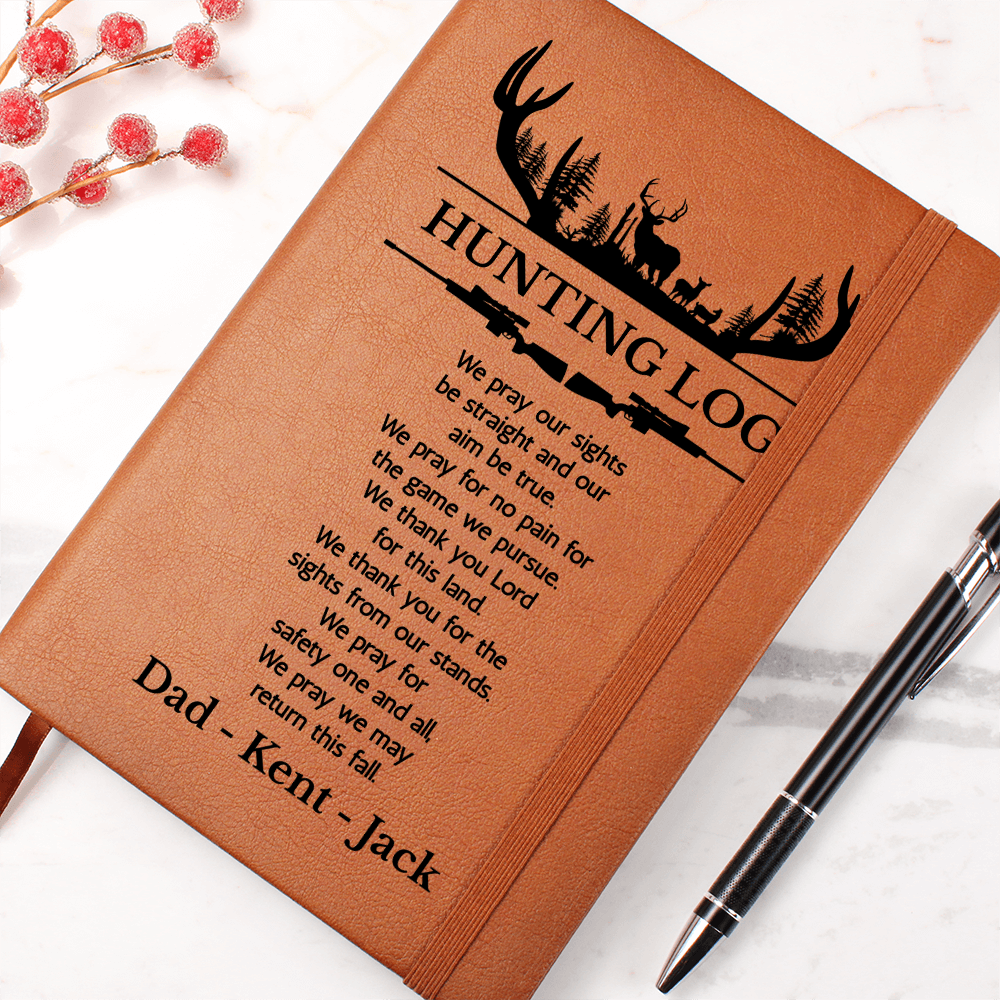 HUNTING LOG
We pray our sights
be straight and our
aim be true.
We pray for no pain for
the game we pursue.
We thank you Lord
for this land.
We thank you for the
sights from our stands.
We pray for
safety one and all,
We pray we may
return this fall.
Dad - Kent - Jack